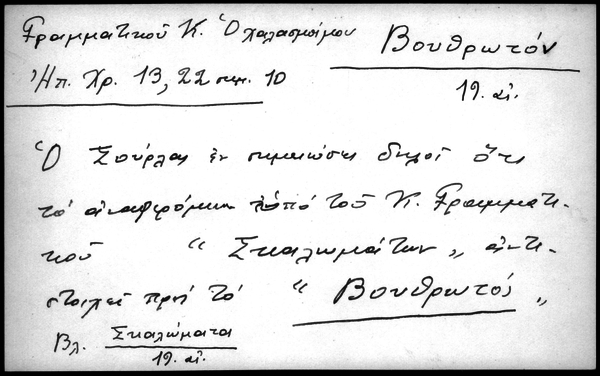 Γραμματικοῦ Κ. Ὁ χαλασμοίμου
Βουθρωτόν
Ἠπ. Χρ. 13, 22 σημ. 10
19. αἰ.
Ὁ Σούρλας ἐν σημειώσει δηλοῖ ὅτι
τό ἀναφερόμενον ὑπό τοῦ Κ. Γραμματι-
κοῦ " Σκαλωμάτων „ ἀντι-
στοιχεῖ πρός τό " Βουθρωτός „
Βλ. Σκαλώματα
19. αἰ.